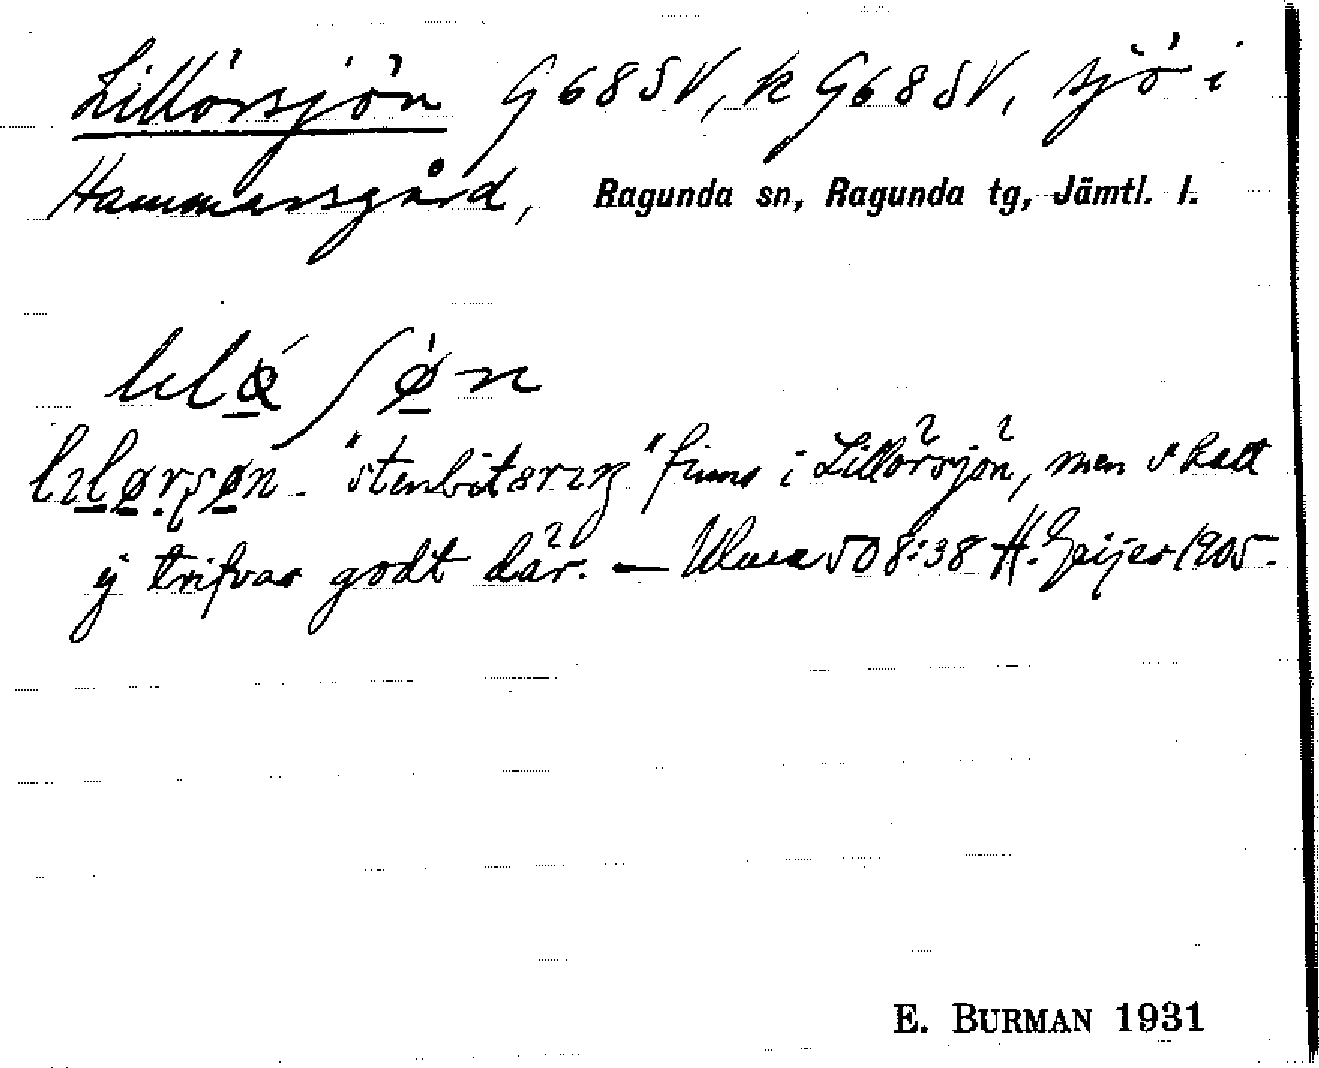 Lillörsjön G 68 SV, k G 68 SV, sjö i
Hammarsgård, Ragunda sn, Ragunda tg, Jämtl. l.
lɩlø̱ ʃø̱n
"stenbitarɩŋ" finns i Lillörsjön, men skall
ej trifvas godt där. — Ulma 508:38 H. Geijer 1905.
E. BURMAN 1931